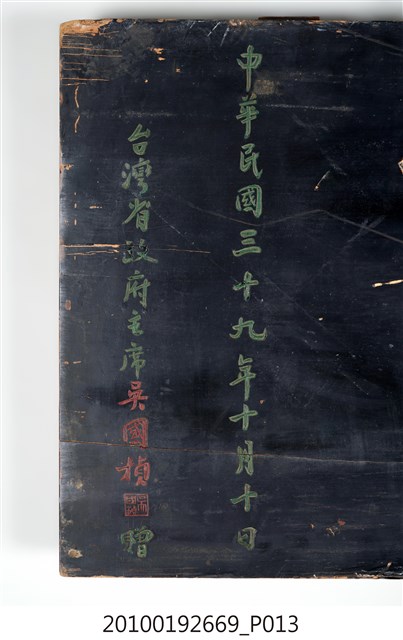 中華民國三十九年十月十日
台灣省政府主席吳國楨
贈
20100192669_P013